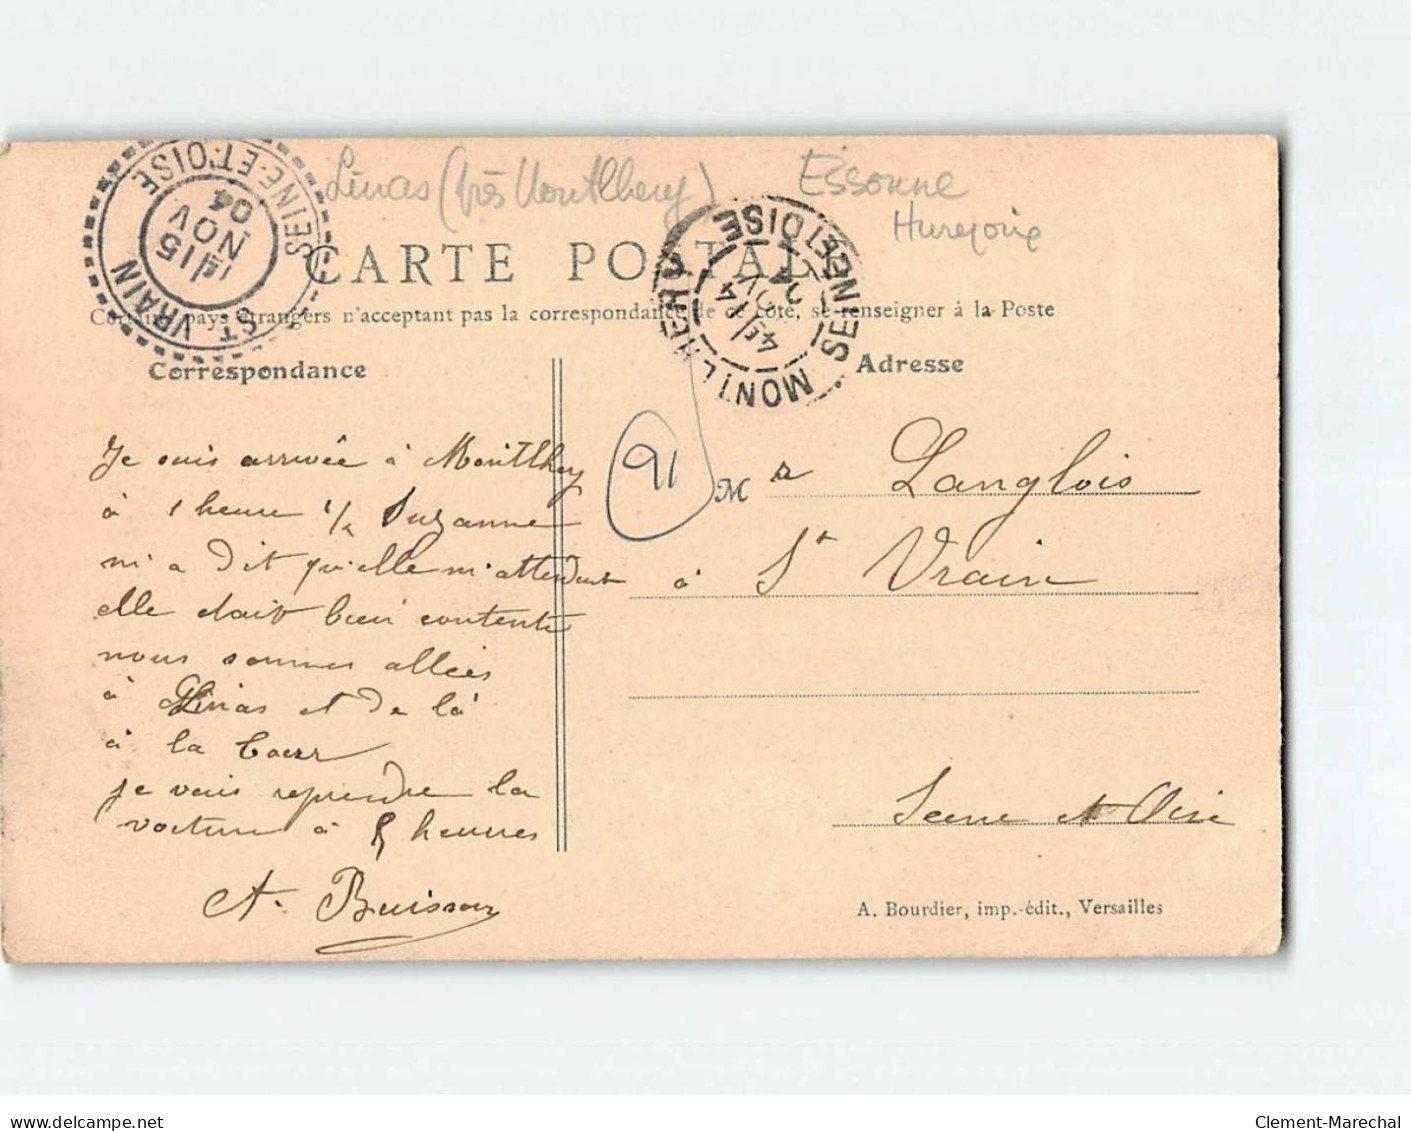 Linas (près Montlhery) Essonne
Hurepoix
ST VRAIN
SEINE-ET-OISE
15
NOV
04
MONTLHERY
SEINE-ET-OISE
14
CARTE POSTALE
pays étrangers n'acceptant pas la correspondance de ce côté, se renseigner à la Poste
Correspondance
Adresse
Je suis arrivée à Montlhery
à 1 heure 1/2 Suzanne
m'a dit qu'elle m'attendait
elle était bien contente
nous sommes allées
à Linas et de là
à la tour
je vais reprendre la
voiture à 5 heures
A. Buisson
91
M r Langlois
à St Vrain
Seine et Oise
A. Bourdier, imp.-édit., Versailles
Clement-Marechal